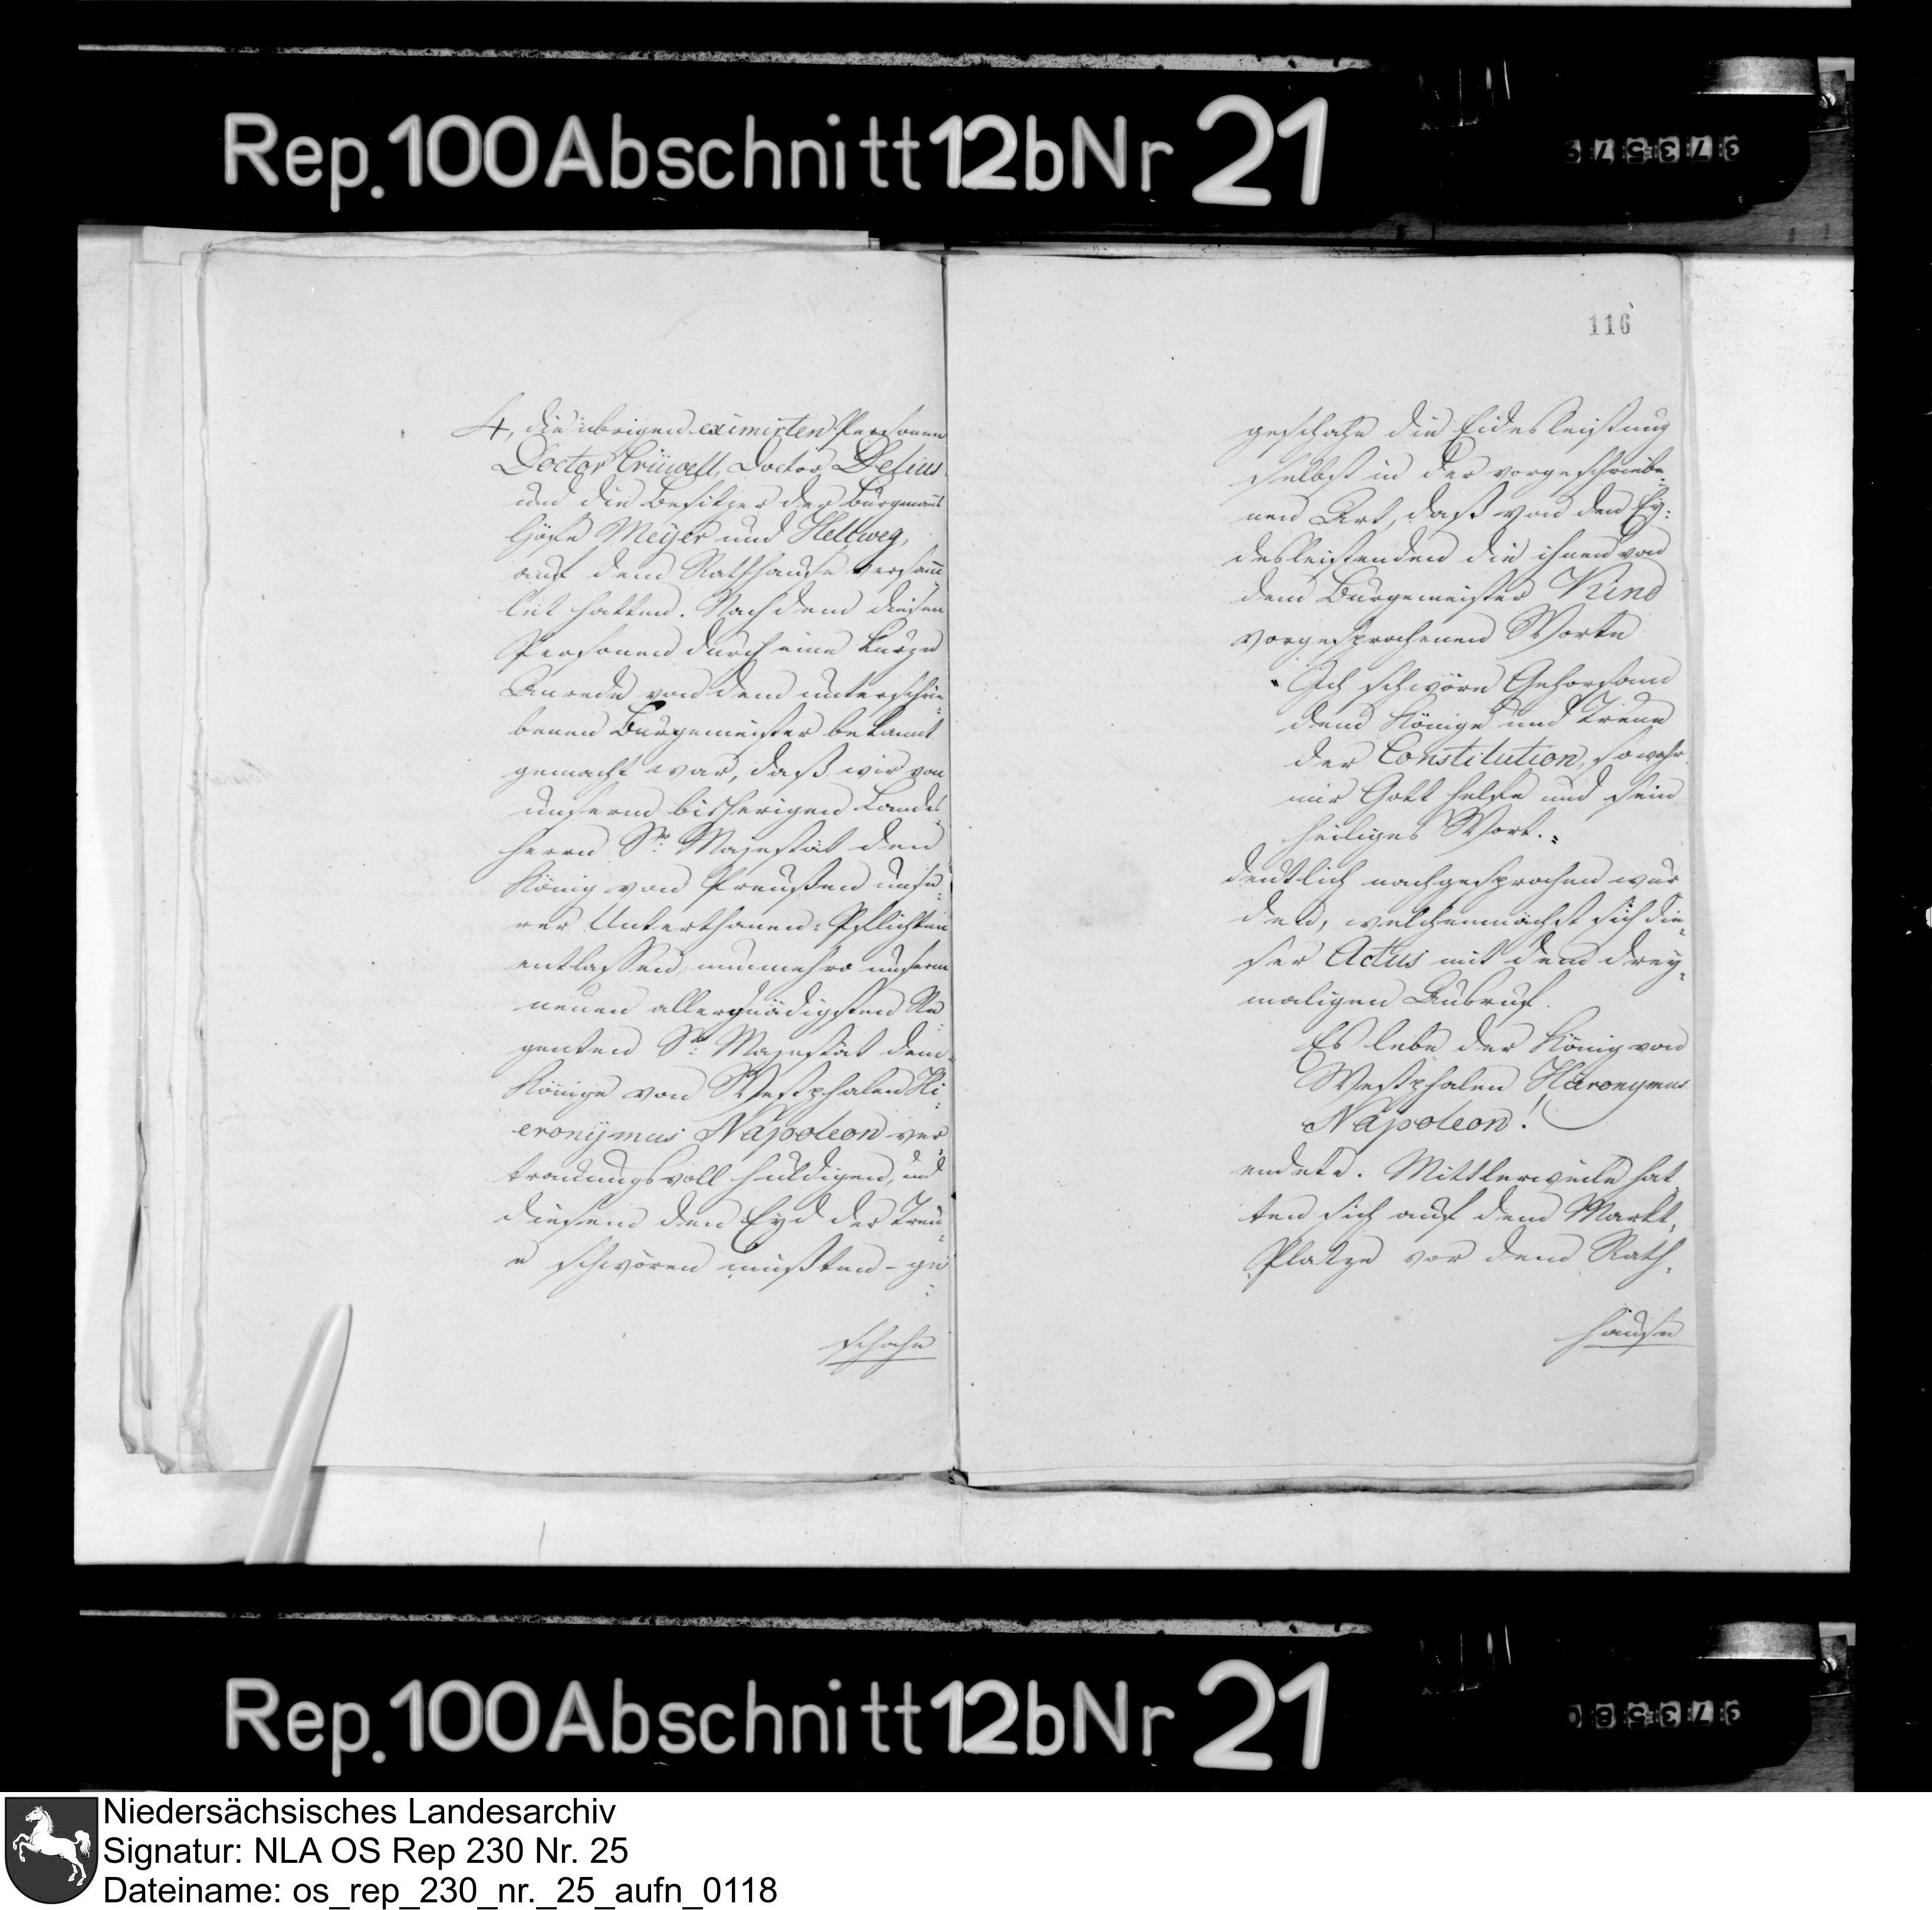 Rep. 100 Abschnitt 12b Nr 21
973579
4, die übrigen eximirten Personen
Doctor Crüwell, Doctor Delius
und die Besitzer der Burgmanns
Höfe Meyer und Hellweg,
auf dem Rathhause versamm
let hatten. Nachdem diesen
Personen durch eine kurze
Anrede von dem unterschrie-
benen Burgemeister bekannt
gemacht war, daß wir von
unserm bisherigen Landes
herrn Sr: Majestät dem
König von Preußen unse-
rer Unterthanen-Pflichten
entlassen, nunmehro unserm
neuen allergnädigsten Re
genten Sr: Majestät dem
Könige von Westphalen Hi-
eronymus Napoleon ver
trauungsvoll huldigen, und
diesem den Eyd der Treu-
e schwören müßten - ge-
schahe
116
geschahe die Eidesleistung
selbst in der vorgeschriebe-
nen Art, daß von den Ey-
desleistenden die ihnen von
dem Burgemeister Kind
vorgesprochenen Worte
"Ich schwöre Gehorsam
dem Könige und Treue
der Constitution, so wahr
mir Gott helfe und sein
heiliges Wort."
deutlich nachgesprochen wur
den, welchemnächst sich die-
ser Actus mit dem drey-
maligen Ausruf.
Es lebe der König von
Westphalen Hieronymus
Napoleon!
endete. Mittlerweile hat
ten sich auf dem Markt-
Platze vor dem Rath-
hause
Rep. 100 Abschnitt 12b Nr 21
973580
Niedersächsisches Landesarchiv
Signatur: NLA OS Rep 230 Nr. 25
Dateiname: os_rep_230_nr._25_aufn_0118